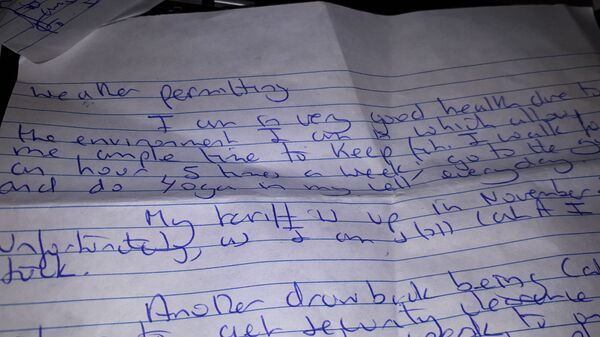 weather permitting
I am in very good health due to
the environment I am in which allow
me ample time to keep fit. I walk for
an hour 5 times a week, go to the g
and do yoga in my cell everyday
My tariff is up in November.
Unfortunately, as I am still Cat A I
stuck.
Another drawback being Cat
to get security clearance